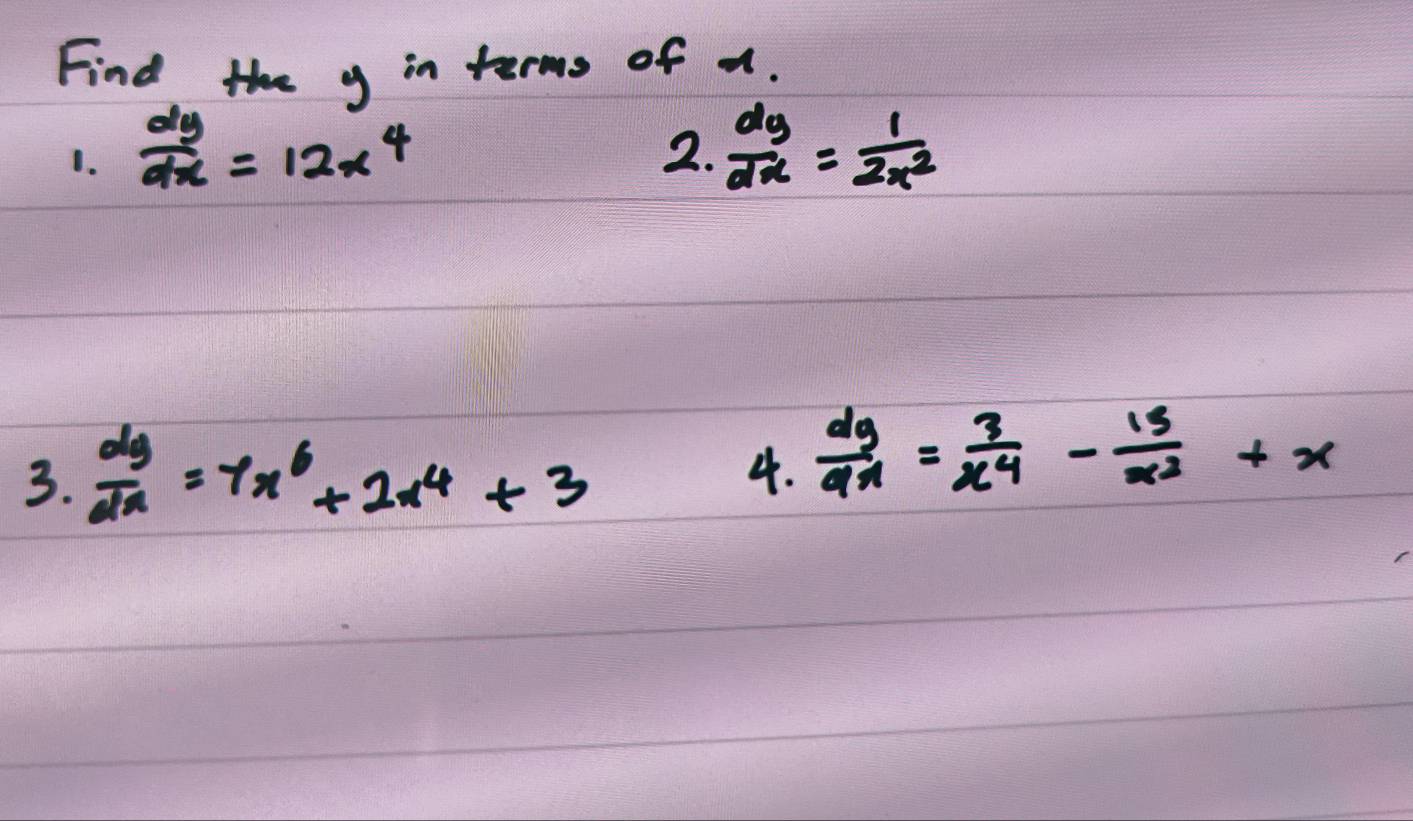 Find the y in terms of x.
1. dy/dx = 12x⁴ 2. dy/dx = 1/2x²
3. dy/dx = 7x⁶ + 2x⁴ + 3 4. dy/dx = 3/x⁴ - 15/x² + x